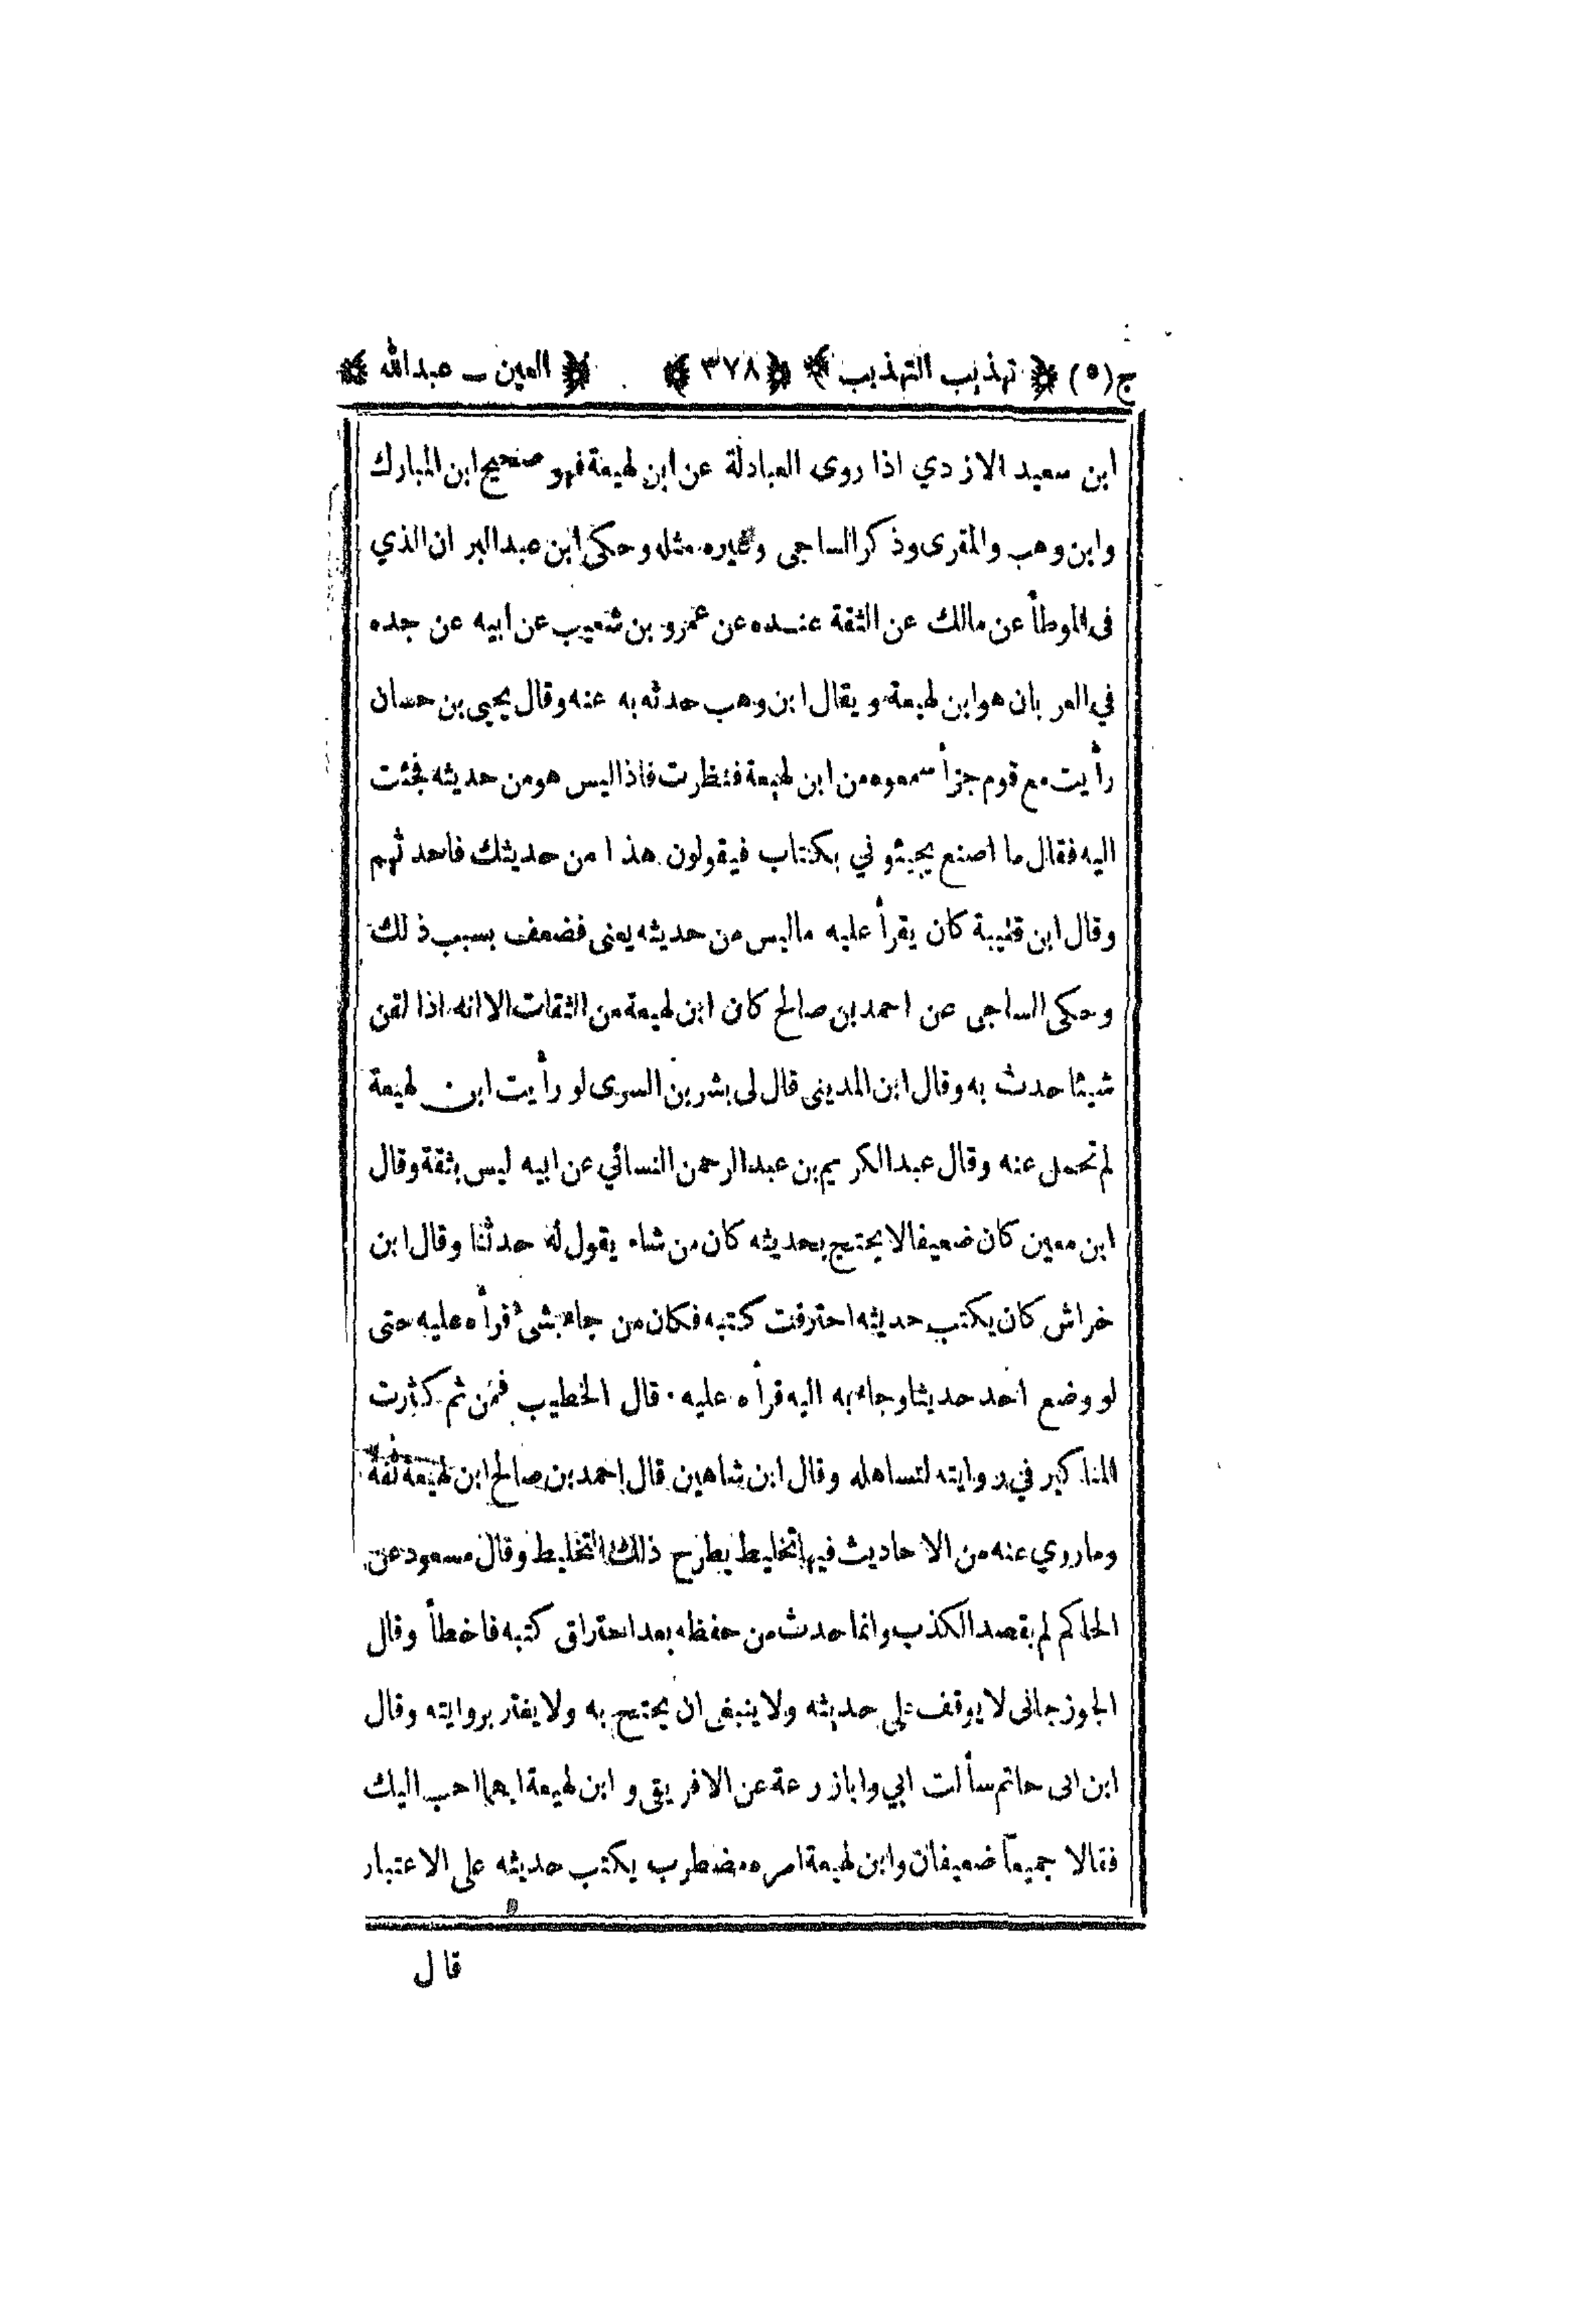 ج (٥) ﴿ تهذيب التهذيب ﴾ ﴿ ٣٧٨ ﴾ ﴿ العين ــ عبدالله ﴾
ابن سعيد الازدي اذا روى العبادلة عن ابن لهيعة فهو صحيح ابن المبارك
وابن وهب والمقرى وذكر الساجى وغيره مثله وحكى ابن عبدالبر ان الذي
فى الموطأ عن مالك عن الثقة عنده عن عمرو بن شعيب عن ابيه عن جده
في العربان هو ابن لهيعة ويقال ابن وهب حدثه به عنه وقال يحيى بن حسان
رأيت مع قوم جزأ سمعوه من ابن لهيعة فنظرت فاذا ليس هو من حديثه فجئت
اليه فقال ما اصنع يجيئوني بكتاب فيقولون هذا من حديثك فاحدثهم
وقال ابن قتيبة كان يقرأ عليه ماليس من حديثه يعنى فضعف بسبب ذلك
وحكى الساجى عن احمد بن صالح كان ابن لهيعة من الثقات الا انه اذا لقن
شيئا حدث به وقال ابن المدينى قال لى بشر بن السرى لو رأيت ابن لهيعة
لم تحمل عنه وقال عبدالكريم بن عبدالرحمن النسائي عن ابيه ليس بثقة وقال
ابن معين كان ضعيفا لا يحتج بحديثه كان من شاء يقول له حدثنا وقال ابن
خراش كان يكتب حديثه احترقت كتبه فكان من جاء بشئ قرأه عليه حتى
لو وضع احد حديثا وجاء به اليه قرأه عليه ٠ قال الخطيب فمن ثم كثرت
المناكير في روايته لتساهله وقال ابن شاهين قال احمد بن صالح ابن لهيعة ثقة
وماروي عنه من الاحاديث فيها تخليط يطرح ذلك التخليط وقال مسعود عن
الحاكم لم يقصد الكذب وانما حدث من حفظه بعد احتراق كتبه فاخطأ وقال
الجوزجانى لا يوقف على حديثه ولا ينبغى ان يحتج به ولا يغتر بروايته وقال
ابن ابى حاتم سألت ابي وابا زرعة عن الافريقى و ابن لهيعة ايهما احب اليك
فقالا جميعاً ضعيفان وابن لهيعة امره مضطرب يكتب حديثه على الاعتبار
قال